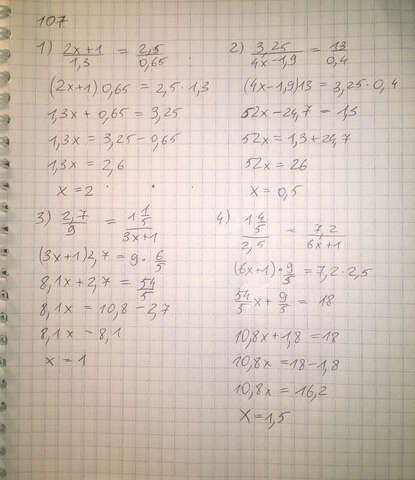 107
1) (2x+1)/1,3 = 2,5/0,65
(2x+1)0,65 = 2,5·1,3
1,3x + 0,65 = 3,25
1,3x = 3,25 - 0,65
1,3x = 2,6
x = 2
2) 3,25/(4x-1,9) = 13/0,4
(4x-1,9)13 = 3,25·0,4
52x - 24,7 = 1,3
52x = 1,3 + 24,7
52x = 26
x = 0,5
3) 2,7/9 = 1 1/5/(3x+1)
(3x+1)2,7 = 9·6/5
8,1x + 2,7 = 54/5
8,1x = 10,8 - 2,7
8,1x = 8,1
x = 1
4) 1 4/5/2,5 = 7,2/(6x+1)
(6x+1)·9/5 = 7,2·2,5
54/5x + 9/5 = 18
10,8x + 1,8 = 18
10,8x = 18 - 1,8
10,8x = 16,2
x = 1,5